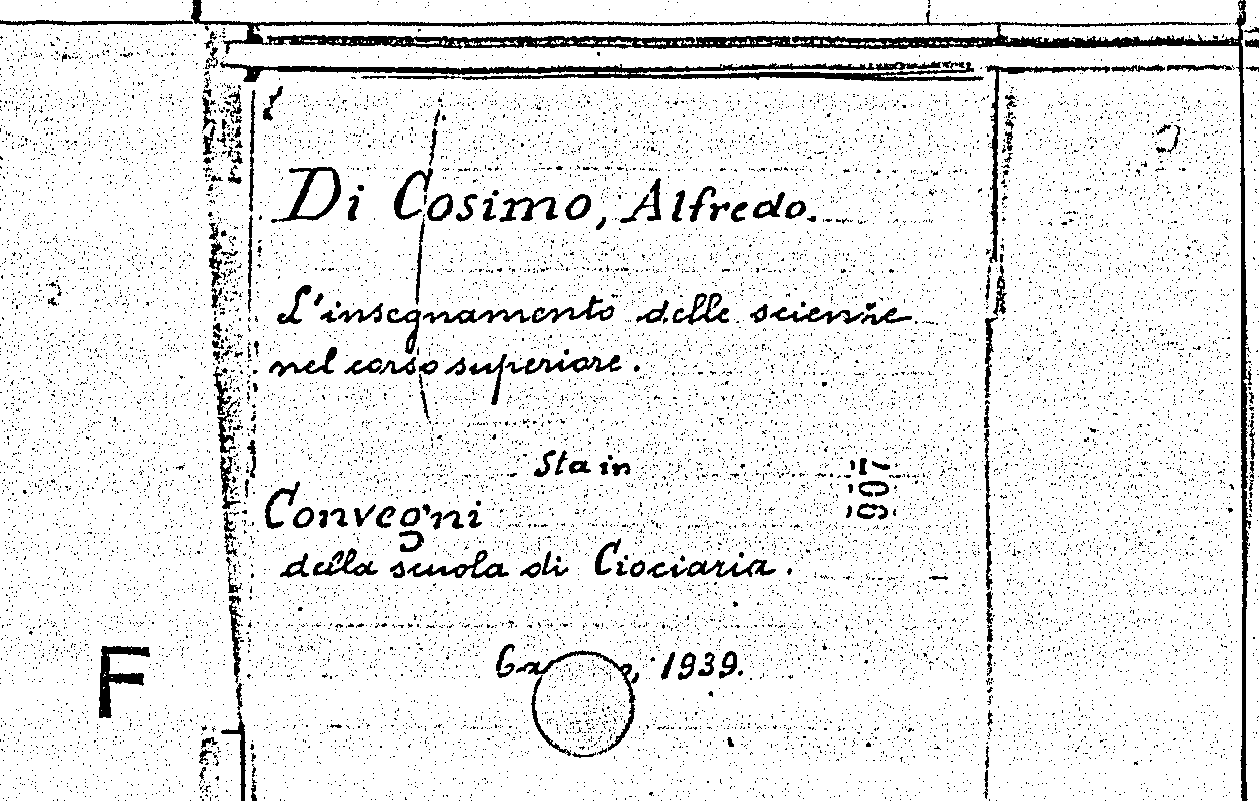 Di Cosimo, Alfredo.
L'insegnamento delle scienze
nel corso superiore.
Sta in
907
Convegni
della scuola di Ciociaria.
1939.
F